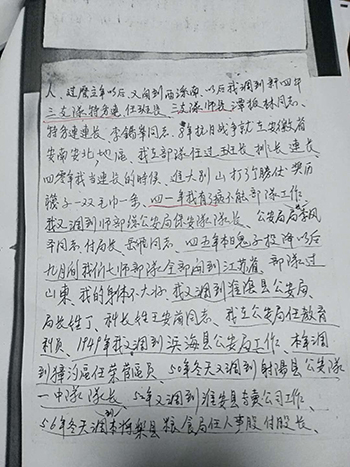 人、过度立华以后、又闹到西淮南、以后我调到新四军
三支队特务连任班长、三支队师长谭振林同志、
特务连连长、李锡华同志、8年抗日战争就在安徽省
安南安北地区、我在部队任过班长排长连长、
四零年我当连长的时候、进大别山打了个胜仗 奖历
袜子一双毛巾一条、四一年我有病不能部队工作、
我又调到师部给公安局保安队队长、公安局局长
同志付局长、同志、四五年日本鬼子投降以后
九月间我们七师部队全部闹到江苏省、部队过
山东、我的身体不大好、我又调到淮阴县公安局
局长姓丁、科长姓王安省同志、我在公安局任教育
科员、1949年我又调到滨海县公安局工作、本年调
到獐沟区任荣管区员、50年冬天又调到射阳县公安队
一中队队长、5年又调到淮安县专卖公司工作、
56年冬天调到将乐县粮食局任人事股付股长、